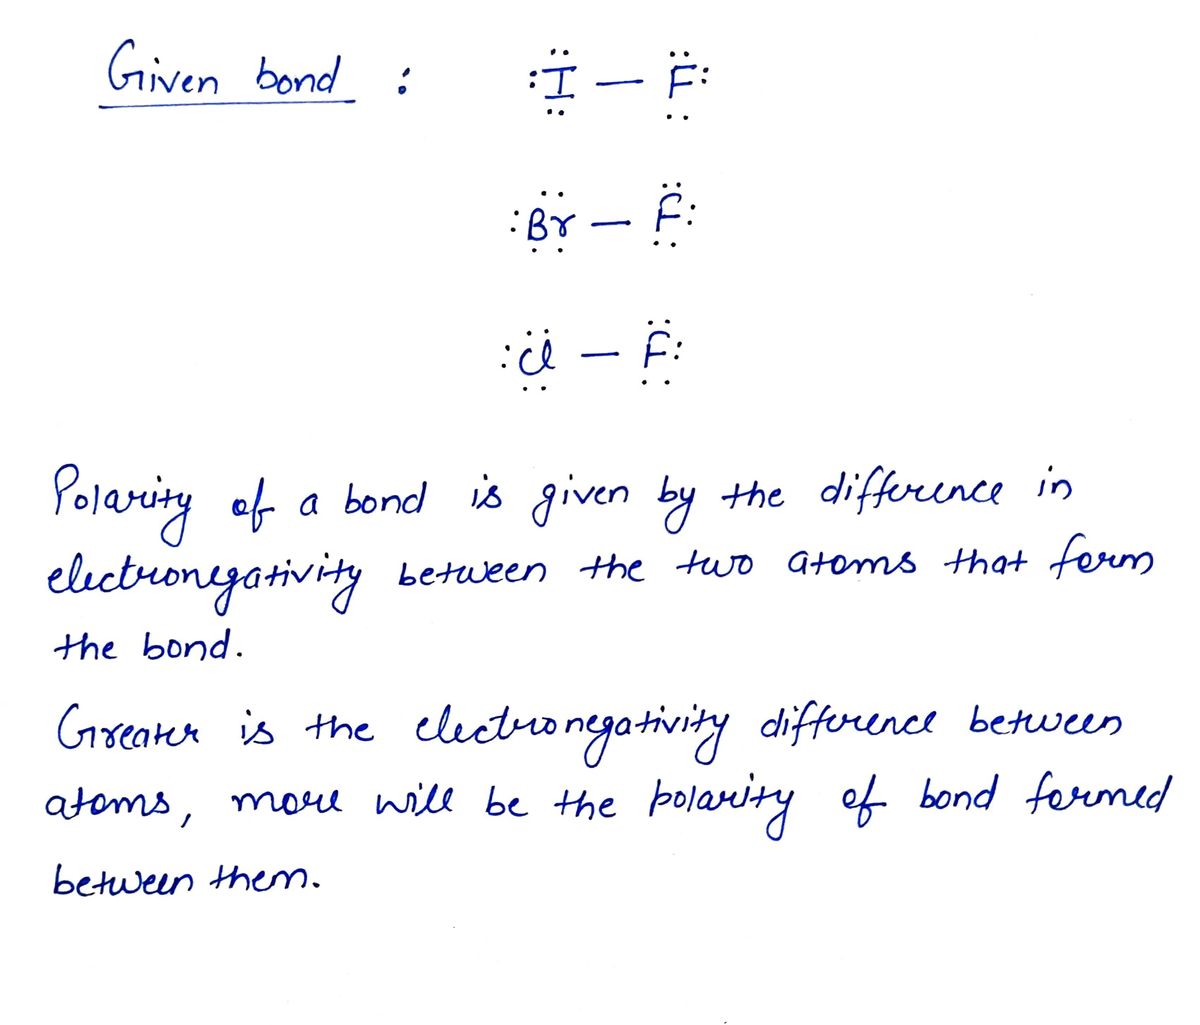 Given bond : :Ï — F̈:
:Br — F̈:
:Cl — F̈:
Polarity of a bond is given by the difference in
electronegativity between the two atoms that form
the bond.
Greater is the electronegativity difference between
atoms, more will be the polarity of bond formed
between them.